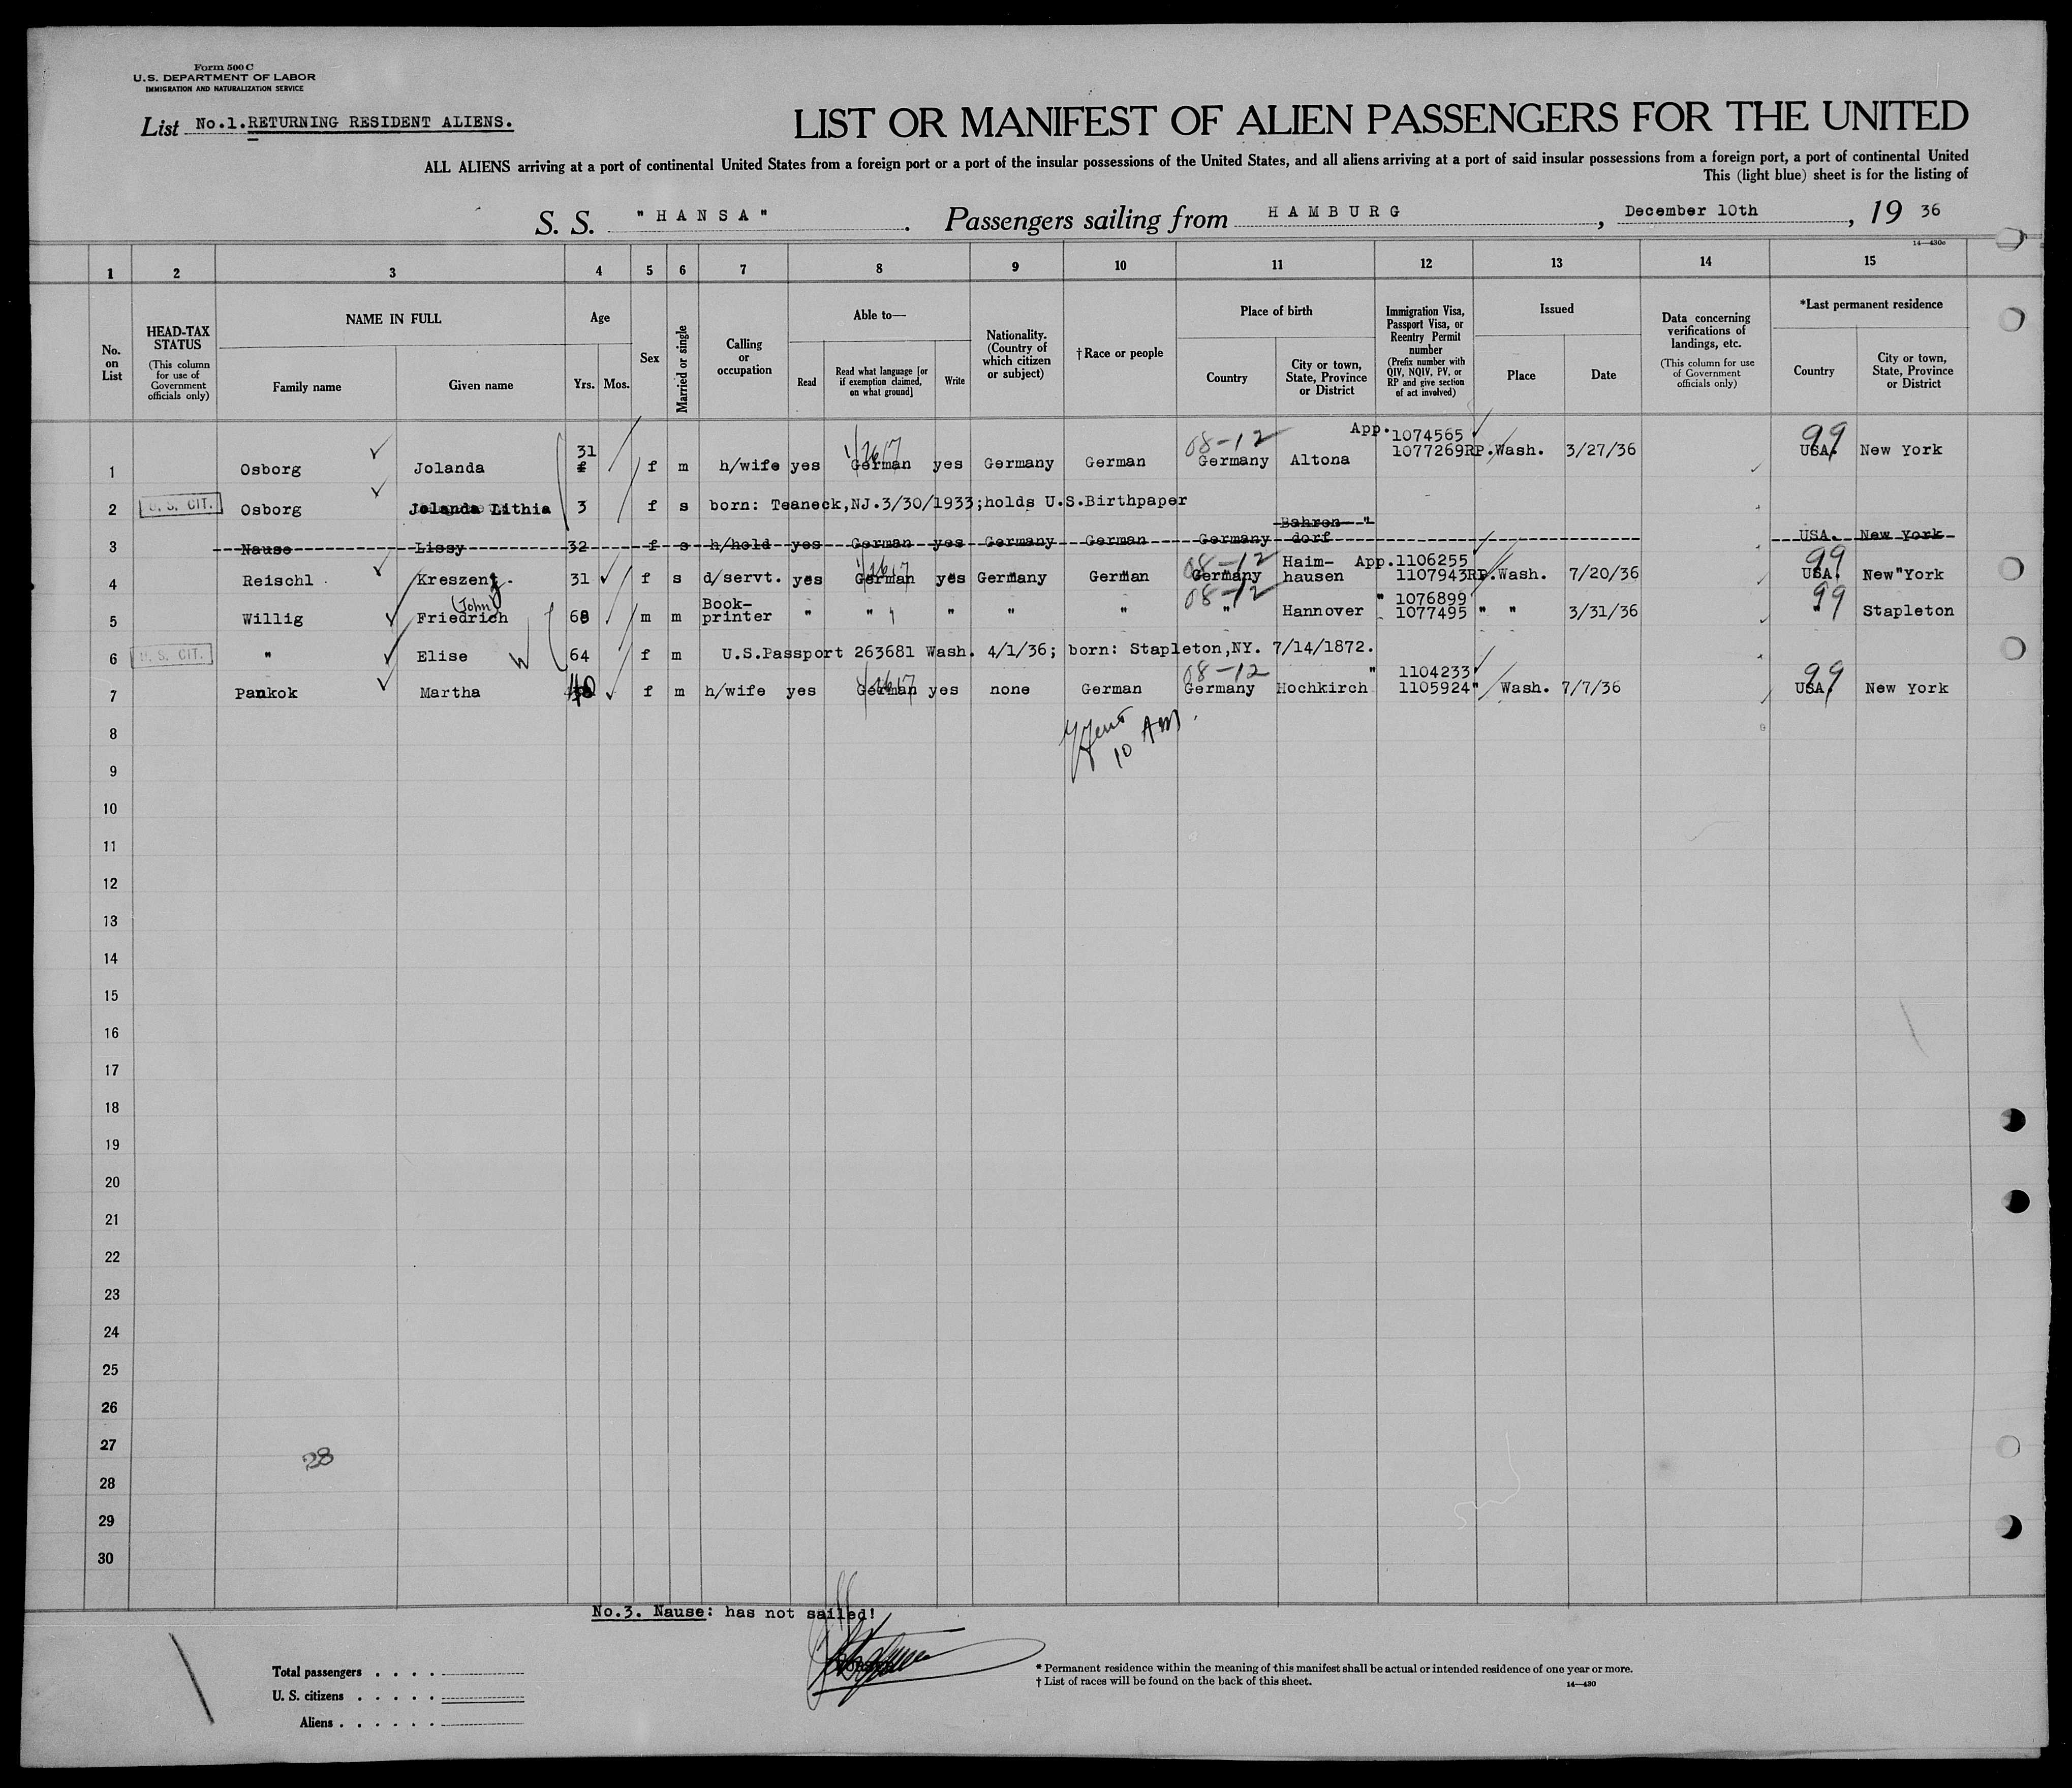 Form 500 C
U.S. DEPARTMENT OF LABOR
IMMIGRATION AND NATURALIZATION SERVICE
List No.1.RETURNING RESIDENT ALIENS.
LIST OR MANIFEST OF ALIEN PASSENGERS FOR THE UNITED
ALL ALIENS arriving at a port of continental United States from a foreign port or a port of the insular possessions of the United States, and all aliens arriving at a port of said insular possessions from a foreign port, a port of continental United
This (light blue) sheet is for the listing of
S. S. "HANSA". Passengers sailing from HAMBURG, December 10th, 19 36
14—430c
1 2 3 4 5 6 7 8 9 10 11 12 13 14 15
No. on List
HEAD-TAX STATUS (This column for use of Government officials only)
NAME IN FULL
Family name
Given name
Age
Yrs. Mos.
Sex
Married or single
Calling or occupation
Able to—
Read
Read what language [or if exemption claimed, on what ground]
Write
Nationality. (Country of which citizen or subject)
† Race or people
Place of birth
Country
City or town, State, Province or District
Immigration Visa, Passport Visa, or Reentry Permit number (Prefix number with QIV, NQIV, PV, or RP and give section of act involved)
Issued
Place
Date
Data concerning verifications of landings, etc. (This column for use of Government officials only)
*Last permanent residence
Country
City or town, State, Province or District
31 08-12 App. 1074565 99
1 Osborg Jolanda f m h/wife yes German yes Germany German Germany Altona 1077269RP. Wash. 3/27/36 USA. New York
2 U. S. CIT. Osborg Lithia 3 f s born: Teaneck,NJ.3/30/1933;holds U.S.Birthpaper
Bahren- "
3 Nause Lissy 32 f s h/hold yes German yes Germany German Germany dorf USA. New York
08-12 Haim- App.1106255 99
4 Reischl Kreszenz 31 f s d/servt. yes German yes Germany German Germany hausen 1107943RP.Wash. 7/20/36 USA. New"York
(John) Book- 08-12 " 1076899 99
5 Willig Friedrich 68 m m printer " " " " " " Hannover 1077495 " " 3/31/36 " Stapleton
6 U. S. CIT. " Elise W 64 f m U.S.Passport 263681 Wash. 4/1/36; born: Stapleton,NY. 7/14/1872.
08-12 " 1104233 99
7 Pankok Martha 40 f m h/wife yes German yes none German Germany Hochkirch 1105924" Wash. 7/7/36 USA. New York
8
10 AM.
9
10
11
12
13
14
15
16
17
18
19
20
21
22
23
24
25
26
27
28
28
29
30
No.3. Nause: has not sailed!
Total passengers . . . .
U. S. citizens . . . . .
Aliens . . . . . .
* Permanent residence within the meaning of this manifest shall be actual or intended residence of one year or more.
† List of races will be found on the back of this sheet.
14—430